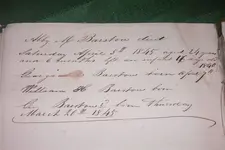 Abby M Barstow died
Saturday April 5th 1845 aged 24 years
and 6 months left an infant 4
George Barstow born
William H Barstow born
Geo Barstow born Thursday
March 20th 1845